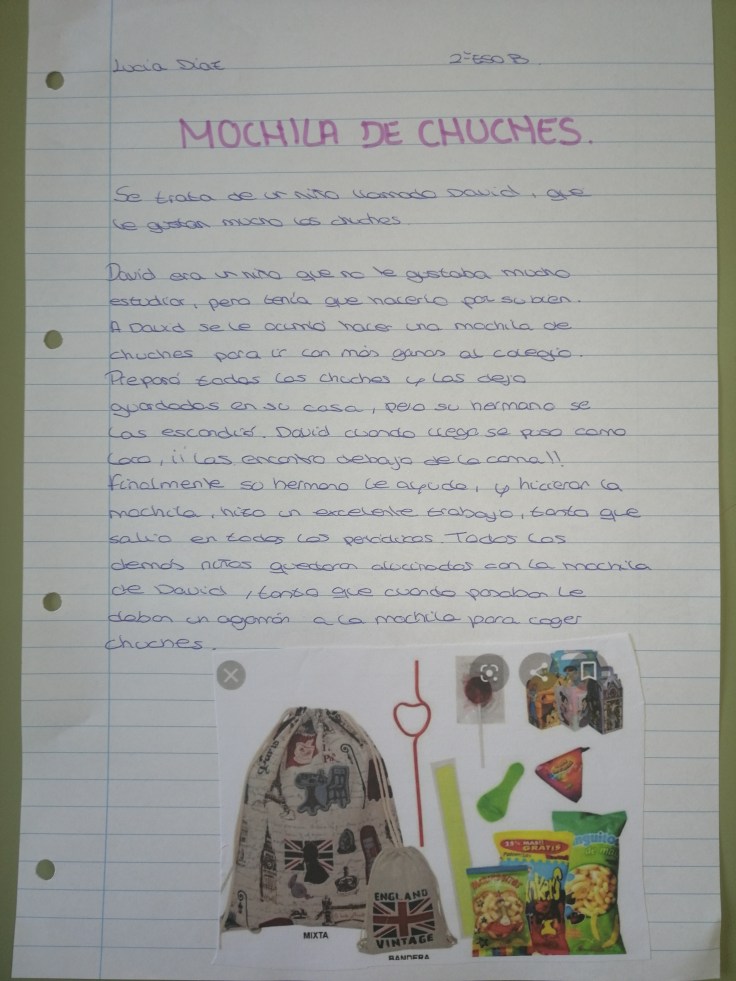 Lucia Diaz 2ºESO B.
MOCHILA DE CHUCHES.
Se trata de un niño llamado David, que
le gustan mucho las chuches.
David era un niño que no le gustaba mucho
estudiar, pero tenía que hacerlo por su bien.
A David se le ocurrió hacer una mochila de
chuches para ir con más ganas al colegio.
Preparó todas las chuches y las dejo
guardadas en su casa, pero su hermano se
las escondió. David cuando llego se puso como
loco, ¡¡ Las encontro debajo de la cama!!
Finalmente su hermano le ayudo, y hicieron la
mochila, hizo un excelente trabajo, tanto que
salio en todos los periódicos. Todos los
demás niños quedaron alucinados con la mochila
de David, tanto que cuando pasaban le
daban un agarrón a la mochila para coger
chuches.
25% MAS
GRATIS
ENGLAND
VINTAGE
MIXTA
BANDERA